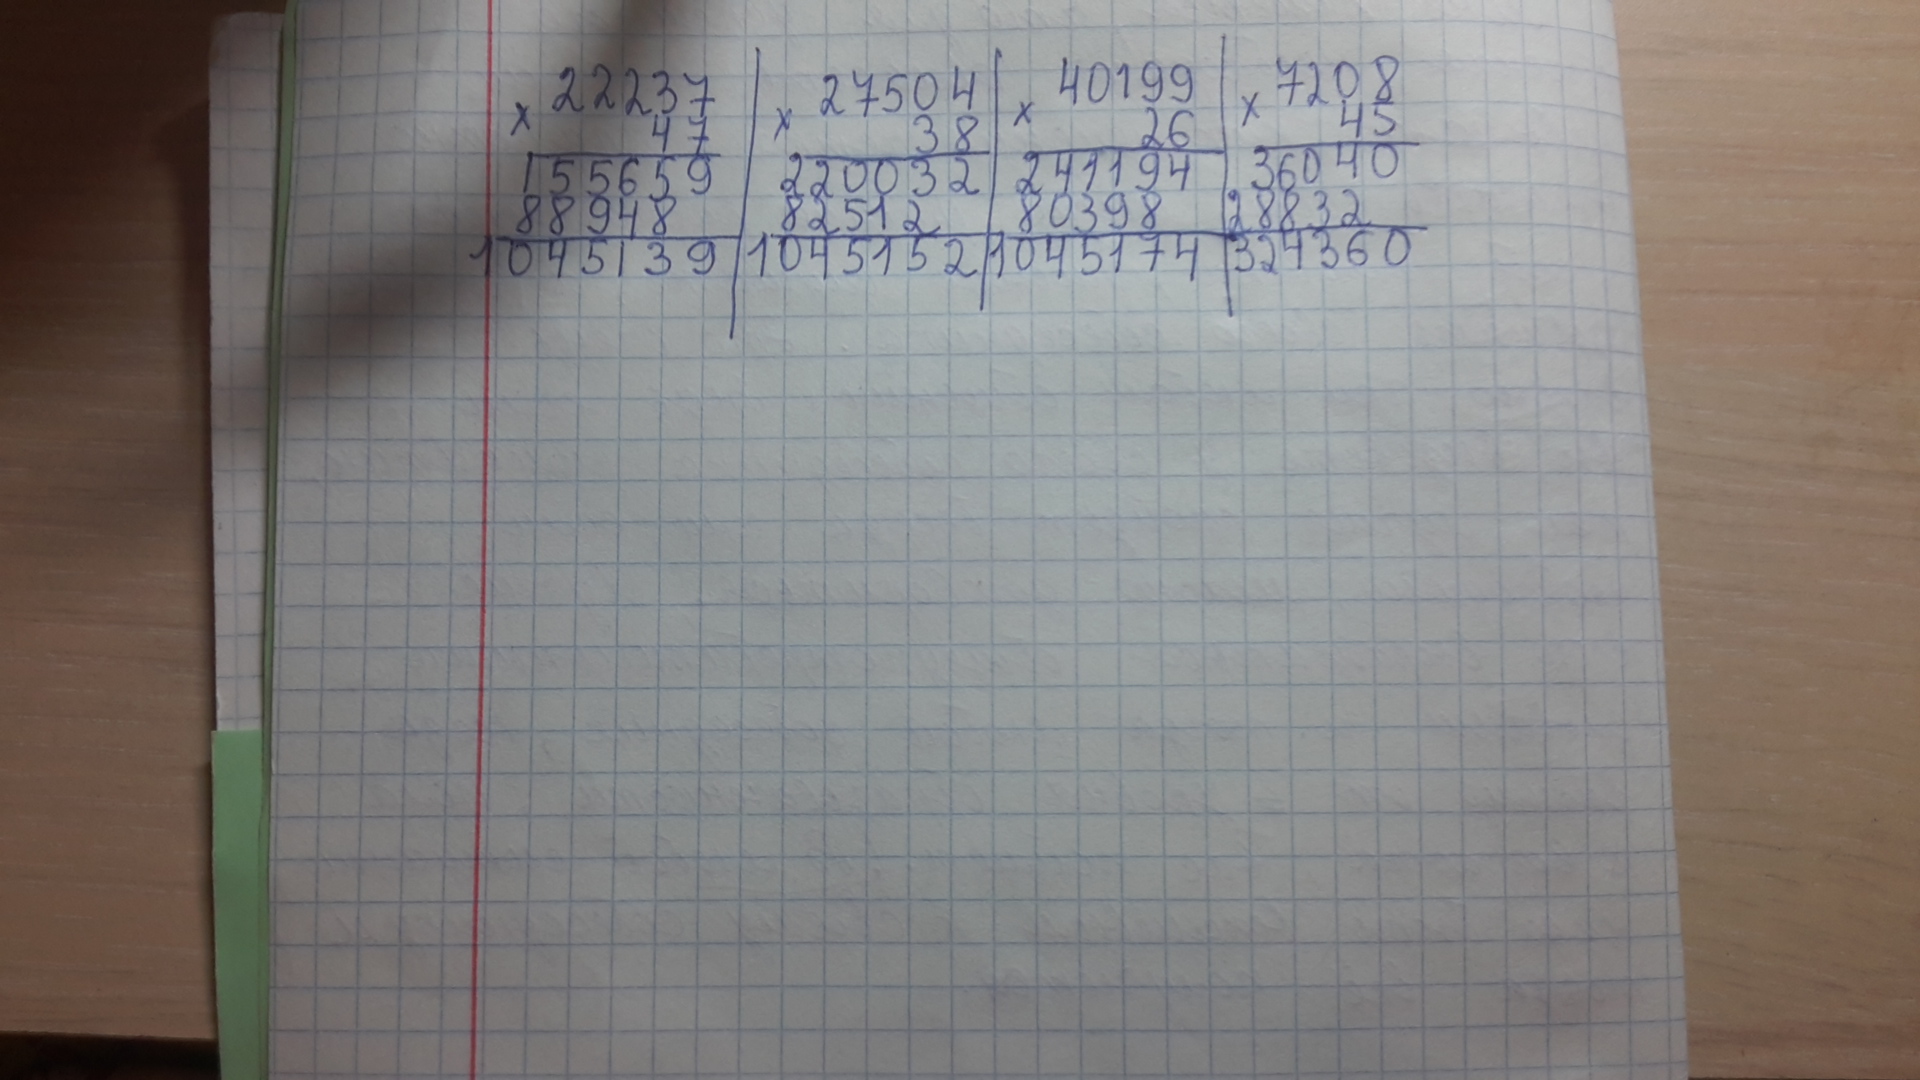 × 22237
47
155659
88948
1045139
× 27504
38
220032
82512
1045152
× 40199
26
241194
80398
1045174
× 7208
45
36040
28832
324360